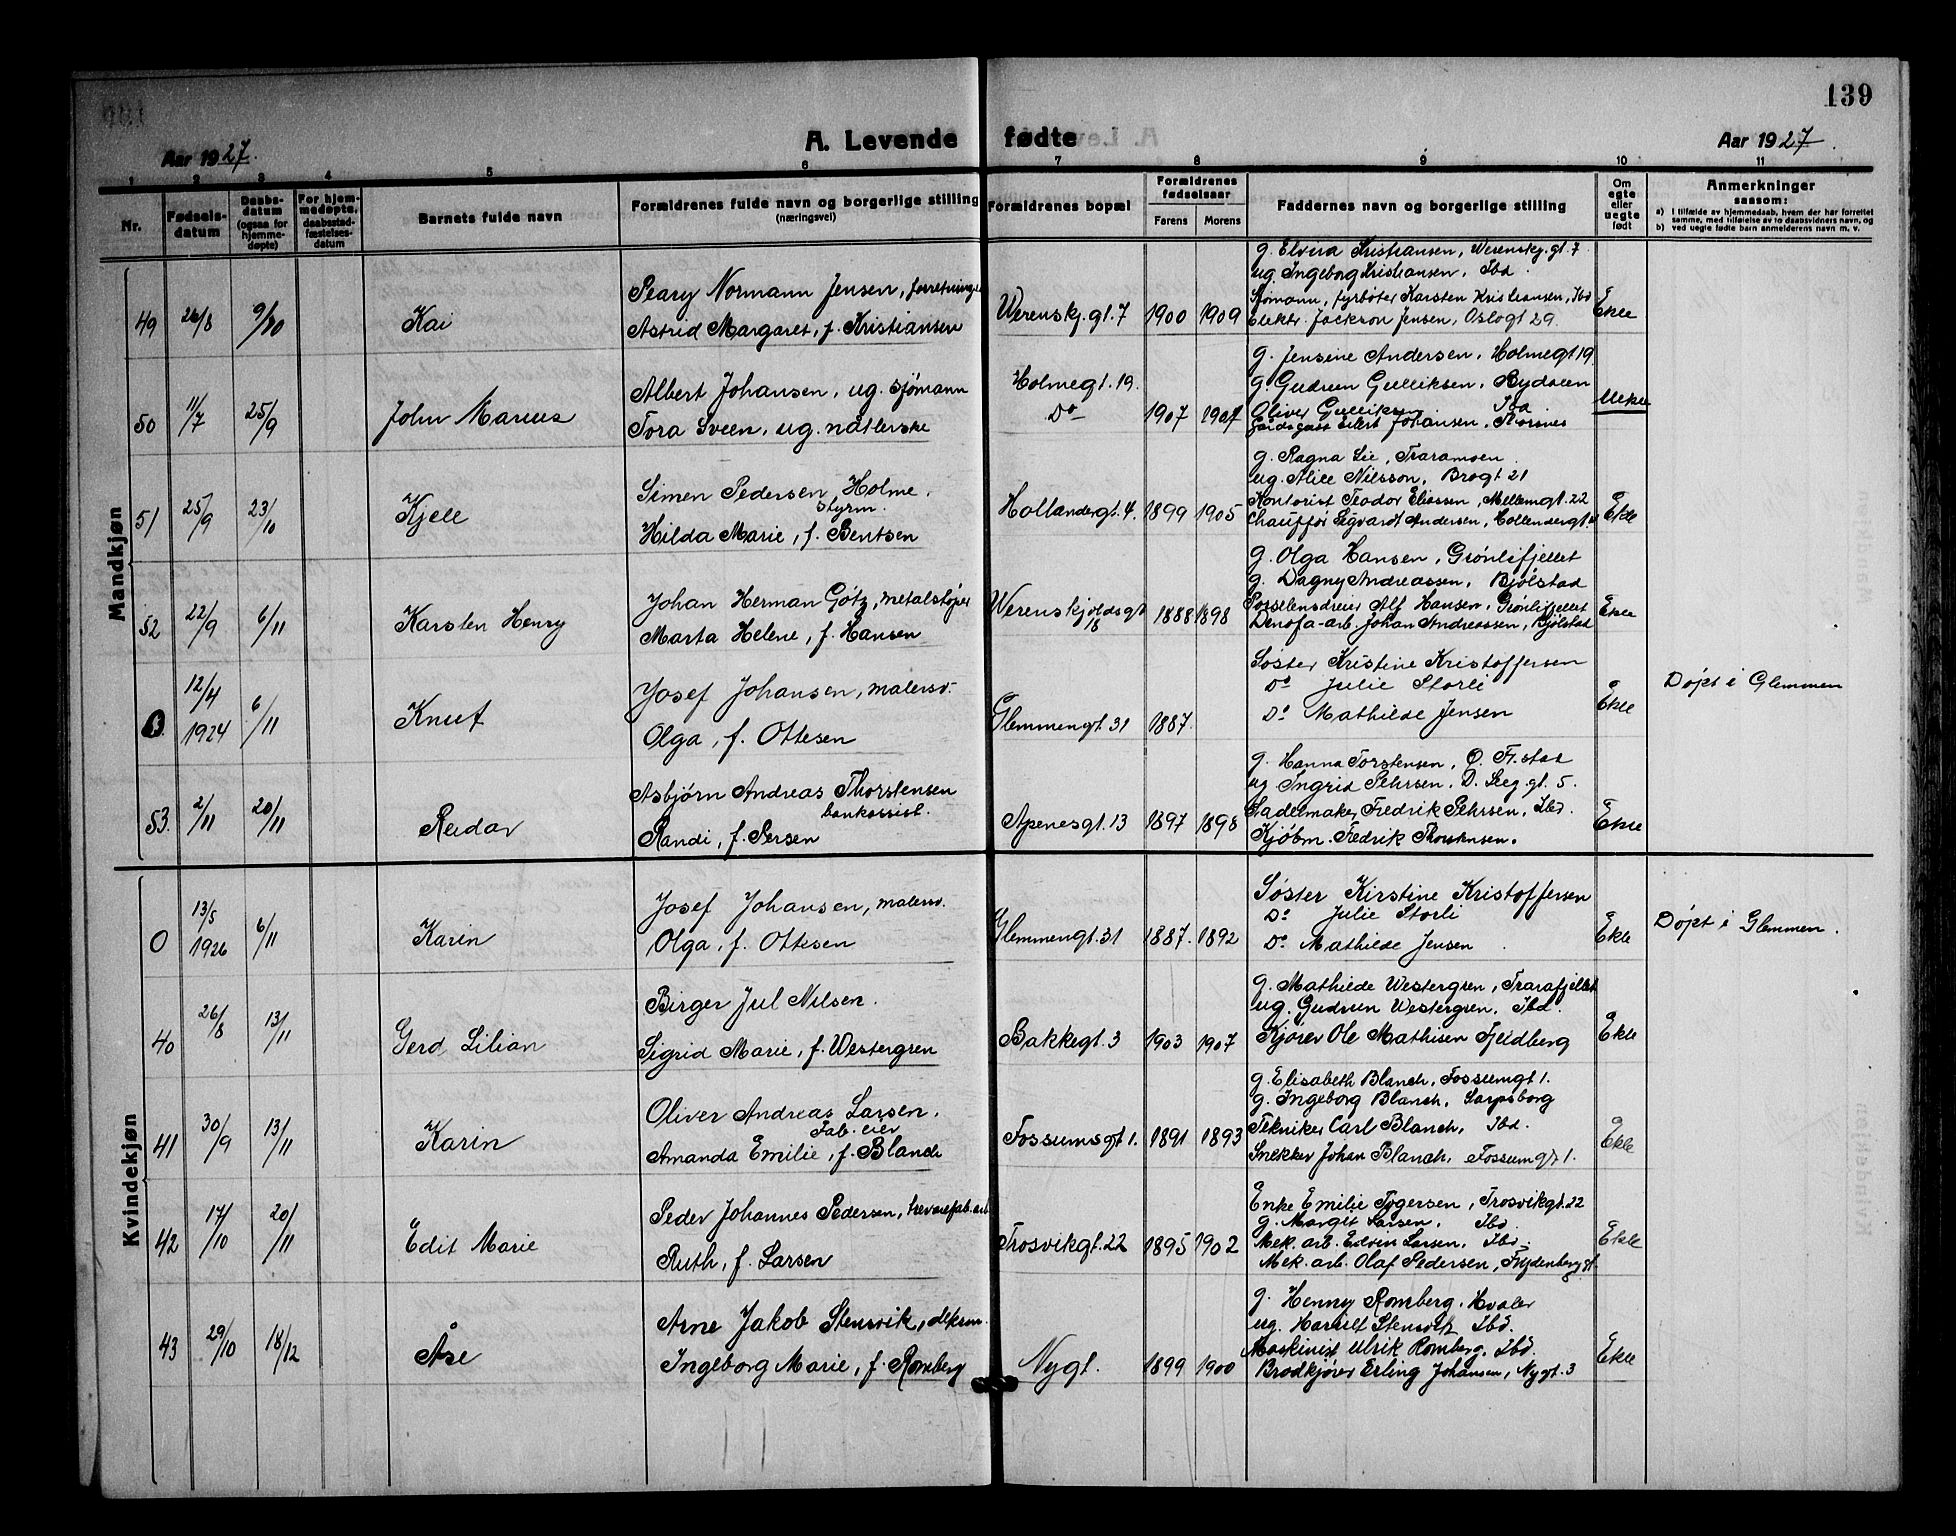 139
Aar 1927.
A. Levende fødte
Aar 1927.
1 2 3 4 5 6 7 8 9 10 11
Nr.
Fødsels-
datum
Daabs-
datum
(ogsaa for
hjemme-
døpte)
For hjem-
medøpte,
daabsstad-
fæstelses-
datum
Barnets fulde navn
Forældrenes fulde navn og borgerlige stilling
(næringsvei)
Forældrenes bopæl
Forældrenes
fødselsaar
Farens Morens
Faddernes navn og borgerlige stilling
Om
egte
eller
uegte
født
Anmerkninger
saasom:
a) I tilfælde av hjemmedaab, hvem der har forrettet
samme, med tilføielse av to daabsvidners navn, og
b) ved uegte fødte barn anmelderens navn m. v.
Mandkjøn
49 26/8 9/10 Kai
Peary Normann Jensen, forretnings
Astrid Margaret, f. Kristiansen
Werenskj. gt. 7 1900 1909
g. Elvira Kristiansen, Werenskj. gt. 7
ug. Ingeborg Kristiansen, Ibd.
Sjømann, fyrbøter Karsten Kristiansen, Ibd
Elektr. Jackson Jensen, Oslogt 29.
Ekte
50 11/7 25/9 John Marius
Albert Johansen, ug. sjømann
Tora Sveen, ug. nåtlerske
Holmegt. 19.
Do 1907 1907
g. Jensine Andersen, Holmegt 19
g. Gudrun Gulliksen, Rydalen
Oliver Gulliksen Ibd
Gårdsgutt Eilert Johansen, Thorsnes
Uekte
51 25/9 23/10 Kjell
Simen Pedersen Holme,
Styrm.
Hilda Marie, f. Bentsen
Hollendergt. 4. 1899 1905
g. Ragna Lie, Traramoen
ug. Alice Nilsson, Brogt 21
Kontorist Teodor Eliassen, Mellemgt. 22
Chauffør Sigvardt Andersen, Hollendergt 4
Ekte
52 22/9 6/11 Karsten Henry
Johan Herman Götz, metalstøper
Marta Helene, f. Hansen
Werenskjoldsgt
18 1888 1898
g. Olga Hansen, Grønlifjellet
g. Dagny Andreassen, Bjølstad
Porselensdreier Alf Hansen, Grønlifjellet
Denofa-arb. Johan Andreassen, Bjølstad
Ekte
0 12/4 1924 6/11 Knut
Josef Johansen, malersv.
Olga, f. Ottesen
Glemmengt 31 1887.
Søster Kristine Kristoffersen
Do Julie Storli
Do Mathilde Jensen
Ekte
Døpt i Glemmen
53. 2/11 20/11 Reidar
Asbjørn Andreas Thorstensen
bankassist.
Randi, f. Persen
Apenesgt. 13 1897 1898
g. Hanna Torstensen, Ø. Fr.stad
ug Ingrid Pehrsen, D. Seeg. gt. 5.
Sadelmaker Fredrik Pehrsen, Ibd.
Kjøbm. Fredrik Thorstensen.
Ekte
Kvindekjøn
0 13/5 1926 6/11 Karin
Josef Johansen, malersv.
Olga, f. Ottesen
Glemmengt. 31 1887. 1892
Søster Kirstine Kristoffersen
Do Julie Storli
Do Mathilde Jensen
Ekte
Døpt i Glemmen.
40 26/8 13/11 Gerd Lilian
Birger Jul Nilsen.
Sigrid Marie, f. Westergren
Bakkegt. 3 1903 1907
g. Mathilde Westergren, Trarafjellet
ug. Gudrun Westergren, Ibd.
Kjører Ole Mathisen Fjeldberg
Ekte
41 30/9 13/11 Karin
Oliver Andreas Larsen,
Fab. eier
Amanda Emilie, f. Blanch
Fossumsgt 1. 1891 1893
g. Elisabeth Blanch, Fossumgt 1.
g. Ingeborg Blanch, Sarpsborg
Tekniker Carl Blanch, Ibd.
Snekker Johan Blanch, Fossumgt 1.
Ekte
42 17/10 20/11 Edit Marie
Peder Johannes Pedersen, trevarefab. arb
Ruth, f. Larsen
Trosvikgt. 22 1895 1902
Enke Emilie Tygersen, Trosvikgt. 22
g. Margit Larsen, Ibd.
Mek. arb. Edvin Larsen, Ibd.
Mek. arb. Olaf Pedersen, Frydenberggt.
Ekte
43 29/10 18/12 Åse
Arne Jakob Stensvik,
Ingeborg Marie, f. Romberg
Nygt. 1899 1900
g. Henny Romberg, Hvaler
ug. Harriet Stensvik Ibd.
Maskinist Ulrik Romberg, Ibd.
Brødkjører Erling Johansen, Nygt. 3
Ekte